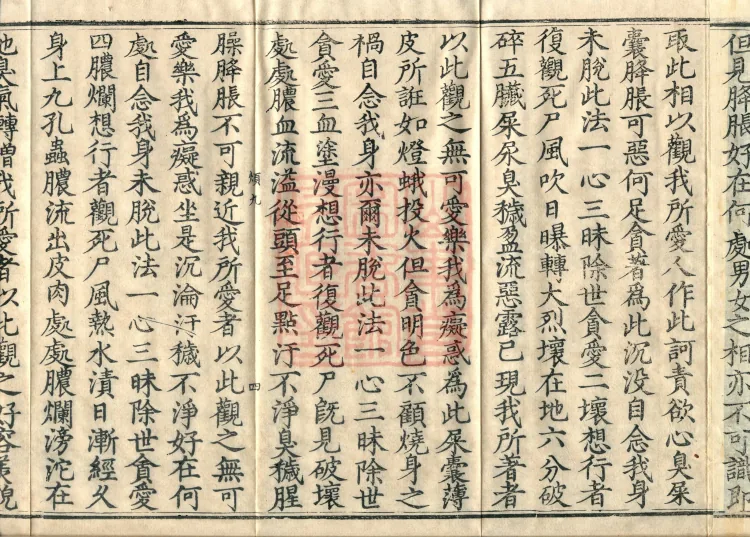 但見膖脹好在何處男女之相亦不可識即
取此相以觀我所愛人作此訶責欲心臭屎
囊膖脹可惡何足貪著為此沉沒自念我身
未脫此法一心三昧除世貪愛二壞想行者
復觀死尸風吹日曝轉大烈壞在地六分破
碎五臟屎尿臭穢盈流惡露已現我所著者
以此觀之無可愛樂我為癡惑為此屎囊薄
皮所誑如燈蛾投火但貪明色不顧燒身之
禍自念我身亦爾未脫此法一心三昧除世
貪愛三血塗漫想行者復觀死尸既見破壞
處處膿血流溢從頭至足點汙不淨臭穢腥
傾九
四
臊膖脹不可親近我所愛者以此觀之無可
愛樂我為癡惑坐是沉淪汙穢不淨好在何
處自念我身未脫此法一心三昧除世貪愛
四膿爛想行者觀死尸風熱水漬日漸經久
身上九孔蟲膿流出皮肉處處膿爛滂沱在
地臭氣轉增我所愛者以此觀之好容美貌